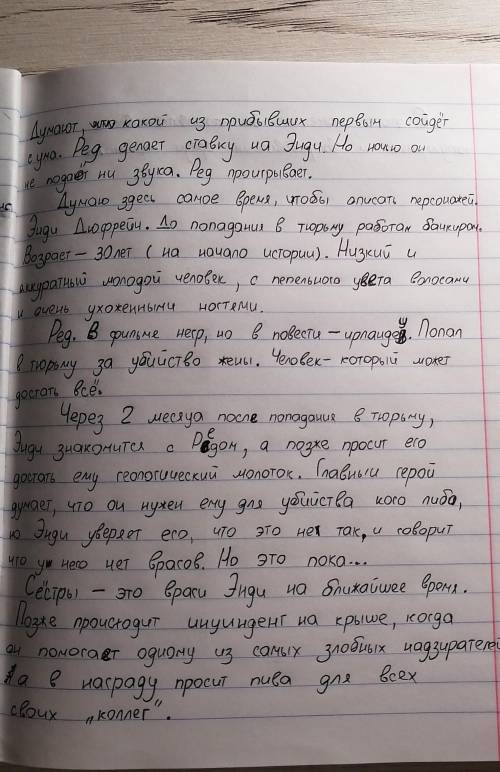 Думают, какой из прибывших первым сойдёт
с ума. Ред делает ставку на Энди. Но ночью он
не подаёт ни звука. Ред проигрывает.
Думаю здесь самое время, чтобы описать персонажей.
Энди Дюфрейн. До попадания в тюрьму работал банкиром.
Возраст – 30 лет (на начало истории). Низкий и
аккуратный молодой человек, с пепельного цвета волосами
и очень ухоженными ногтями.
Ред. В фильме негр, но в повести – ирландец. Попал
в тюрьму за убийство жены. Человек – который может
достать всё.
Через 2 месяца после попадания в тюрьму,
Энди знакомится с Редом, а позже просит его
достать ему геологический молоток. Главный герой
думает, что он нужен ему для убийства кого либо,
но Энди уверяет его, что это не так, и говорит
что у него нет врагов. Но это пока...
Сёстры – это враги Энди на ближайшее время.
Позже происходит инцидент на крыше, когда
он помогает одному из самых злобных надзирателей
а в награду просит пива для всех
своих „коллег".